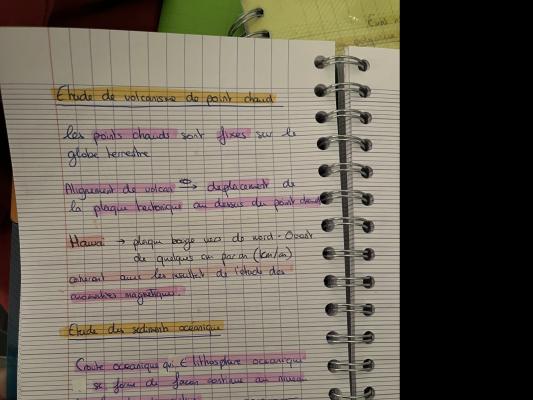 Etude de volcanisme de point chaud
les points chauds sont fixes sur le
globe terrestre
Alignement de volcan ⇔ deplacement de
la plaque tectonique au dessus du point chaud
Hawaï → plaque bouge vers de nord-Ouest
de quelques cm par an (km/an)
coherent avec les resultat de l'étude des
anomalies magnetiques.
Etude des sediments océanique
Croute oceanique qui ∈ lithosphere oceanique
se forme de facon continue au niveau